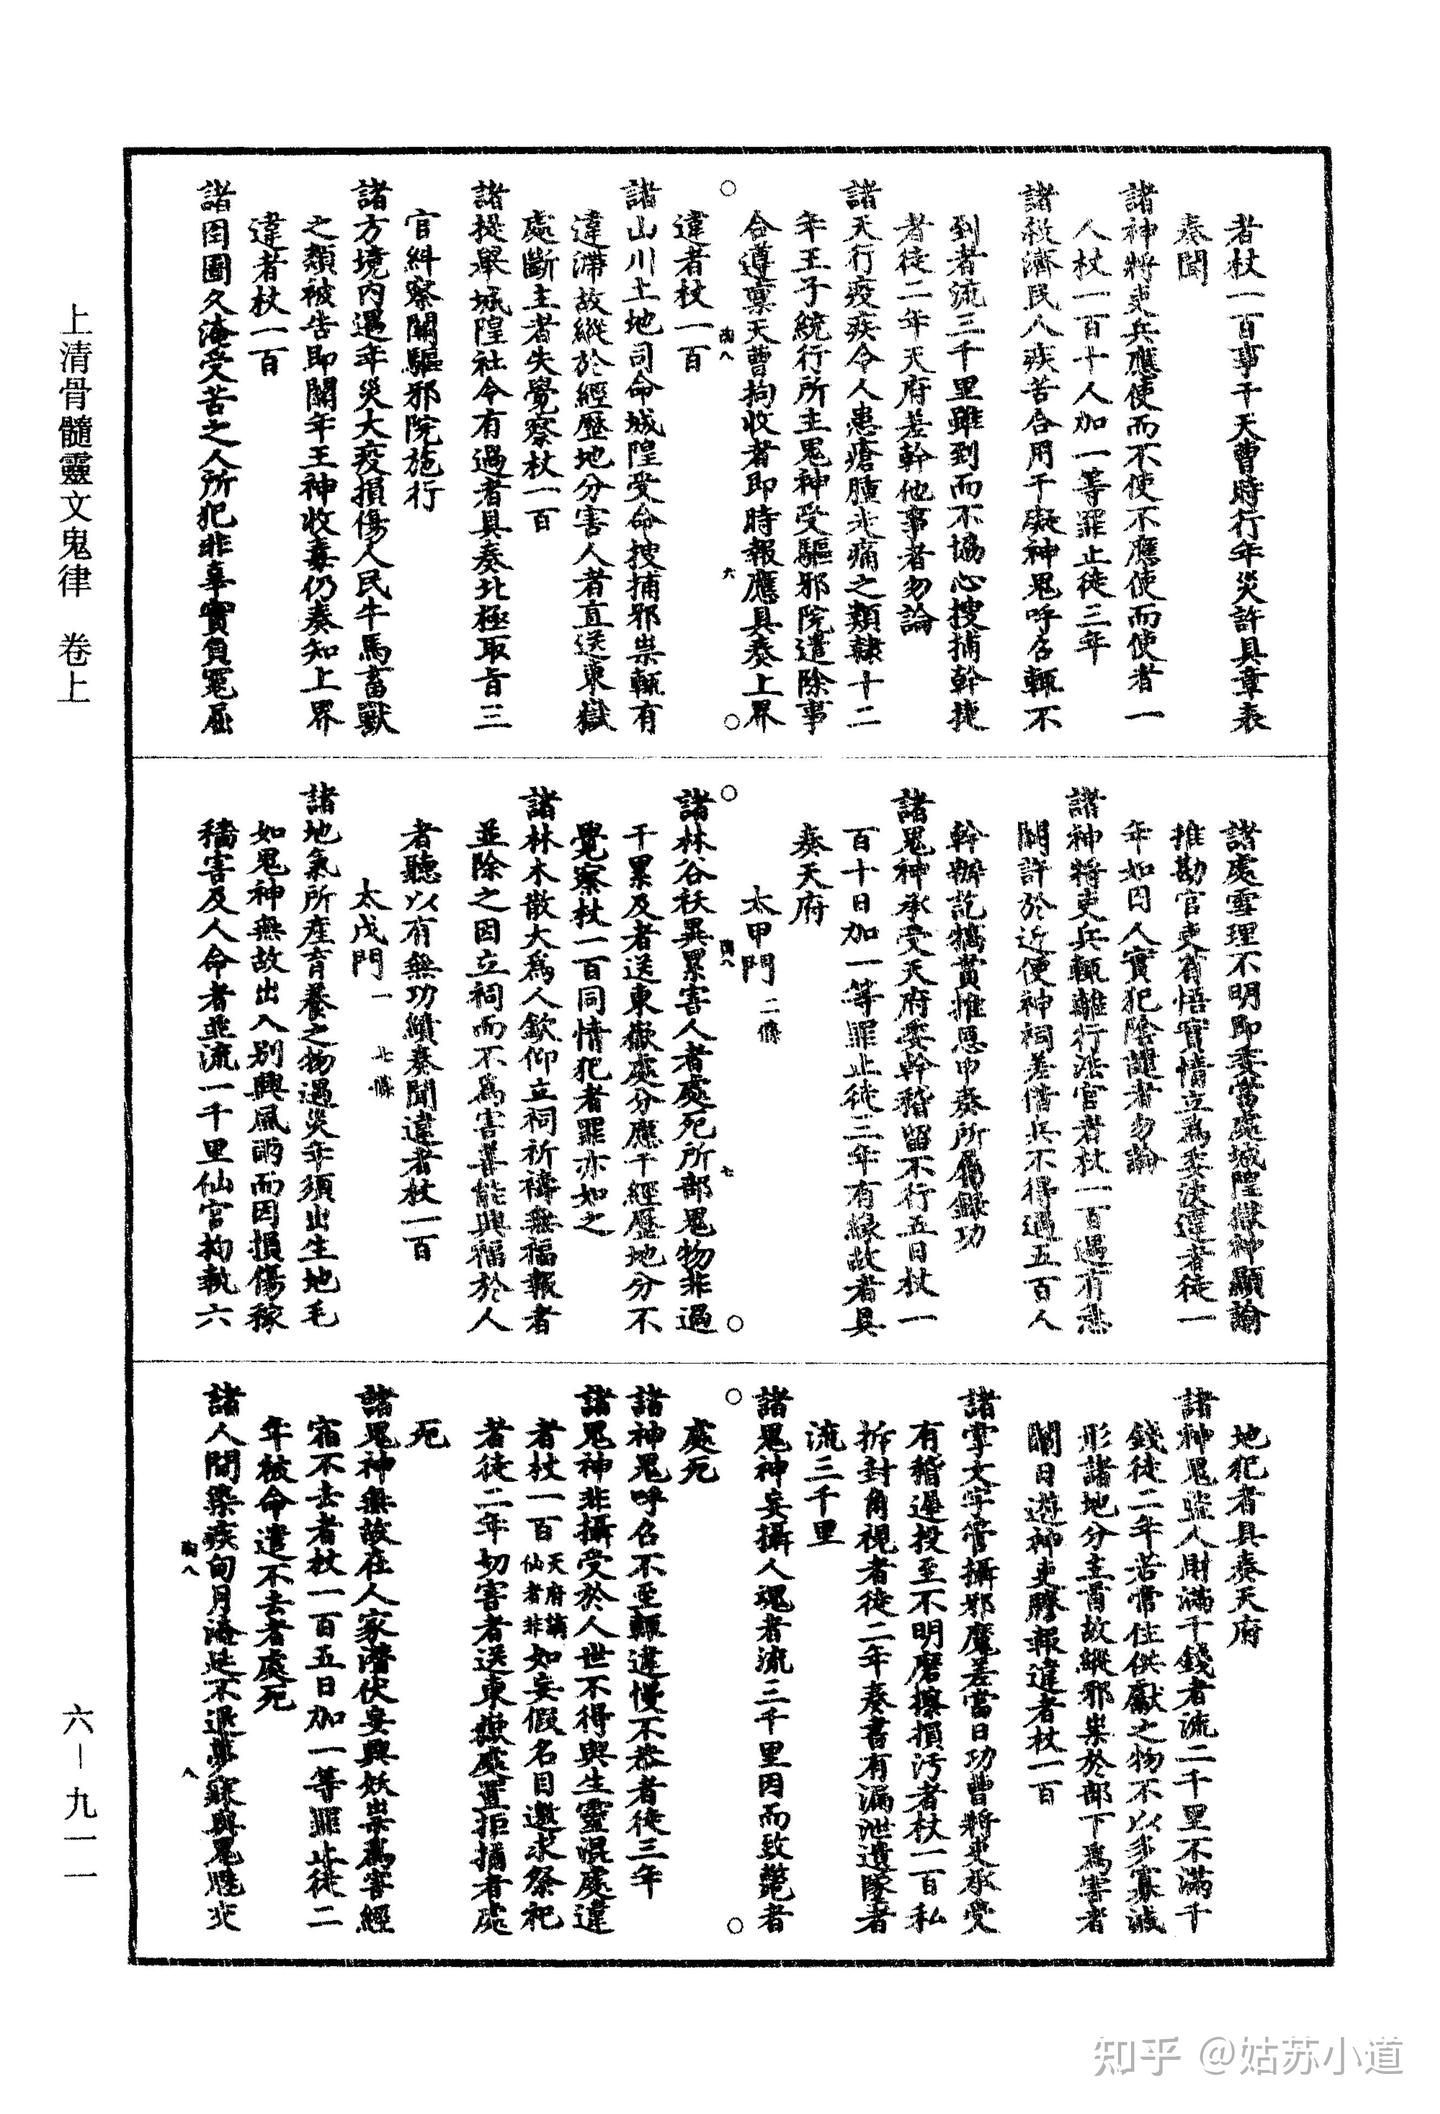 者杖一百事干天曹時行年災許具章表
奏聞
諸神將吏兵應使而不使不應使而使者一
人杖一百十人加一等罪止徒三年
諸救濟民人疾苦合用干礙神鬼呼召輒不
到者流三千里雖到而不協心搜捕幹捷
者徒二年天府差幹他事者勿論
諸天行疫疾令人患瘡腫走痛之類隸十二
年王子統行所主鬼神受驅邪院遣除事
合遵稟天曹拘收者即時報應具奏上界
違者杖一百
諸山川土地司命城隍受命搜捕邪祟輒有
違滯故縱於經歷地分害人者直送東嶽
處斷主者失覺察杖一百
諸提舉城隍社令有過者具奏北極取旨三
官糾察關驅邪院施行
諸方境內遇年災大疫損傷人民牛馬畜獸
之類被告即關年王神收毒仍奏知上界
違者杖一百
諸囹圄久淹受苦之人所犯非辜實負冤屈
諸處雪理不明即委當處城隍獄神顯諭
推勘官吏省悟實情立為委決違者徒一
年如囚人實犯陰譴者勿論
諸神將吏兵輒離行法官者杖一百遇有患
關許於近便神祠差借兵不得過五百人
幹辦訖犒賞推恩申奏所屬錄功
諸鬼神承受天府委幹稽留不行五日杖一
百十日加一等罪止徒三年有緣故者具
奏天府
太甲門 二條
諸林谷祅異累害人者處死所部鬼物非過
干累及者送東嶽處分應干經歷地分不
覺察杖一百同情犯者罪亦如之
諸林木散大為人欽仰立祠祈禱無福報者
並除之因立祠而不為害善能興福於人
者聽以有無功績奏聞違者杖一百
太戊門 一七條
諸地氣所產育養之物遇災年須出生地毛
如鬼神無故出入別興風雨而因損傷稼
穡害及人命者並流一千里仙官拘執六
地犯者具奏天府
諸神鬼盜人財滿千錢者流二千里不滿千
錢徒二年若常住供獻之物不以多寡減
形諸地分主酋故縱邪祟於部下為害者
關日遊神吏膠報違者杖一百
諸掌文字管攝邪魔差當日功曹將吏承受
有稽遲投至不明磨擦損污者杖一百私
拆封角視者徒二年奏書有漏泄遺墜者
流三千里
諸鬼神妄攝人魂者流三千里因而致斃者
處死
諸神鬼呼召不至輒違慢不恭者徒三年
諸鬼神非攝受於人世不得與生靈混處違
者杖一百天府謫仙者非如妄假名目邀求祭祀
者徒二年切害者送東嶽處置拒捕者處
死
諸鬼神無故在人家潛伏妄興妖祟為害經
宿不去者杖一百五日加一等罪止徒二
年被命遣不去者處死
諸人間染疾旬月淹延不退夢寐與鬼魅交
上清骨髓靈文鬼律 卷上
六－九一一
知乎 @姑苏小道